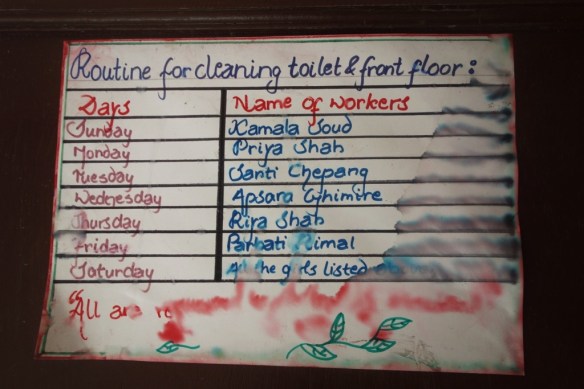 Routine for cleaning toilet & front floor :
Days Name of workers
Sunday Kamala Soud
Monday Priya Shah
Tuesday Santi Chepang
Wednesday Apsara Ghimire
Thursday Rira Shah
Friday Parbati Rimal
Saturday All the girls listed
All are